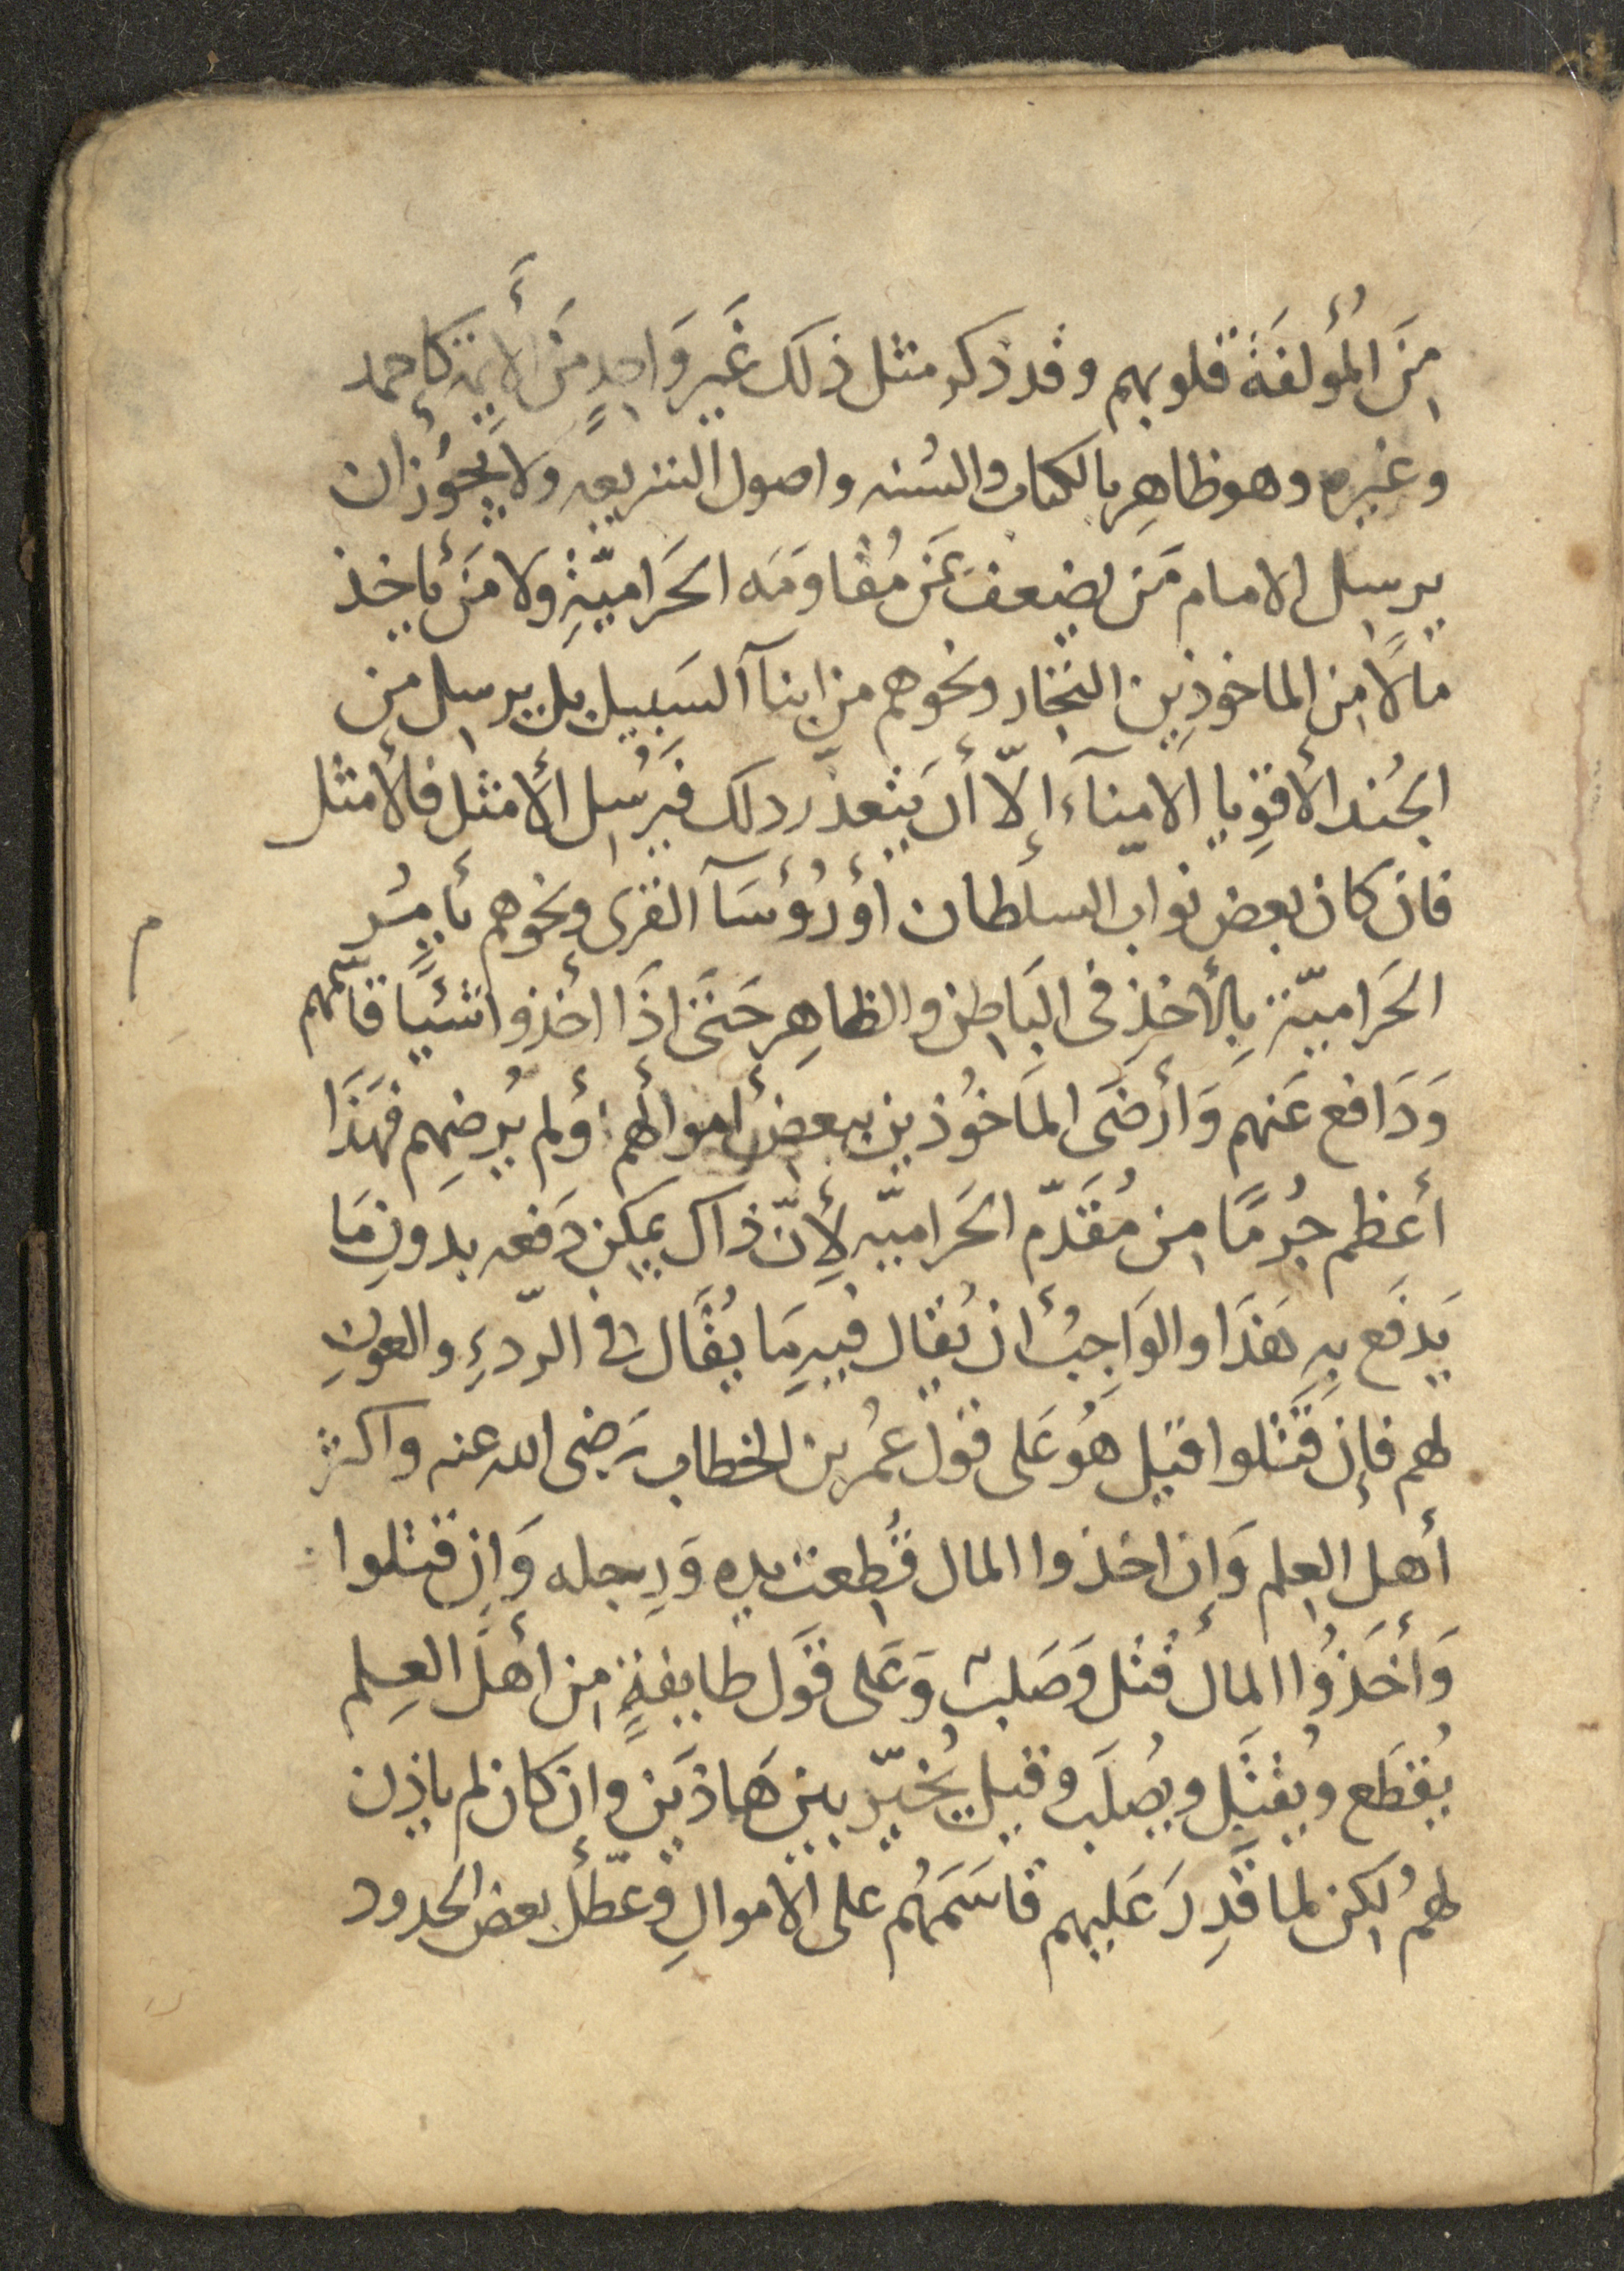 مِنَ المُؤلفَة قلوبهم وقد ذكر مثل ذلك غَير وَاحِدٍ مَن الأَيمة كأحمد
وغيره وهو ظاهِر بالكتاب والسُنه واصول الشريعه ولا يجُوز ان
يرسل الامام مَن يضعف عَن مُقاوَمَه الحَراميّةِ ولا مَن يأخذ
مالًا مِن الماخوذِين التجار ونحوهم من ابنآ السَبيل بل يرسل من
الجُند الأقوِيا الامنآء إلّا أن يَتعذّر ذلك فَيرُسل الأمثل فالأمثل
فان كان بعض نواب السلطان أو رُؤسَآ القرى ونحوهم يأمُر
الحَراميّة بِالأخذِ فى البَاطِن والظاهِر حَتَى اذَا أخذوا شئيًا قاسّمهم
وَدَافع عَنهم وَأرضَى المَاخُوذين ببعض أموالهم أو لم يُرضِهم فهَذَا
أعظم جُرمًا مِن مُقَدّم الحَراميّه لِأنّ ذاك يمكن دَفعه بدَونِ مَا
يَدفَع بِهِ هَذَا والوَاجِبُ أن يُقال فيهِ مَا يُقَال فى الرّدءِ والعونِ
لهم فإن قَتَلوا قتِل هُوَ عَلى قول عمُر بن الخطاب رَضى الله عنه واكثر
أهل العِلم وَإن اخذوا المال قُطِعت يده وَرِجله وَإن قتلوا
وَأخَذُوا المال قُتل وَصَلب وَعَلى قَول طايفةٍ مِن أهلَ العِلم
يُقطَع ويُقتَل ويُصلَب وقيل يُخيّر بين هَاذَين وإن كان لم ياذِن
لهمُ لكِن لما قَدِرَ عَليهم قاسَمَهُم على الأموالِ وعّطل بعض الحدود
م